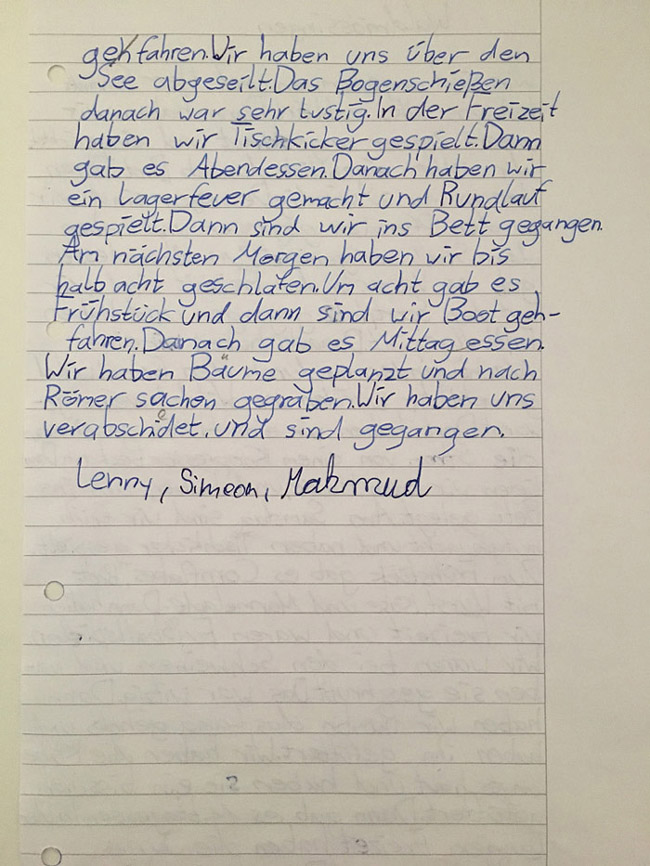 gehfahren. Wir haben uns über den
See abgeseilt. Das Bogenschießen
danach war sehr lustig. In der Freizeit
haben wir Tischkicker gespielt. Dann
gab es Abendessen. Danach haben wir
ein Lagerfeuer gemacht und Rundlauf
gespielt. Dann sind wir ins Bett gegangen.
Am nächsten Morgen haben wir bis
halb acht geschlafen. Um acht gab es
Frühstück und dann sind wir Boot geh-
fahren. Danach gab es Mittagessen.
Wir haben Bäume geplanzt und nach
Römer sachen gegraben. Wir haben uns
verabschidet. und sind gegangen.
Lenny, Simeon, Makmud